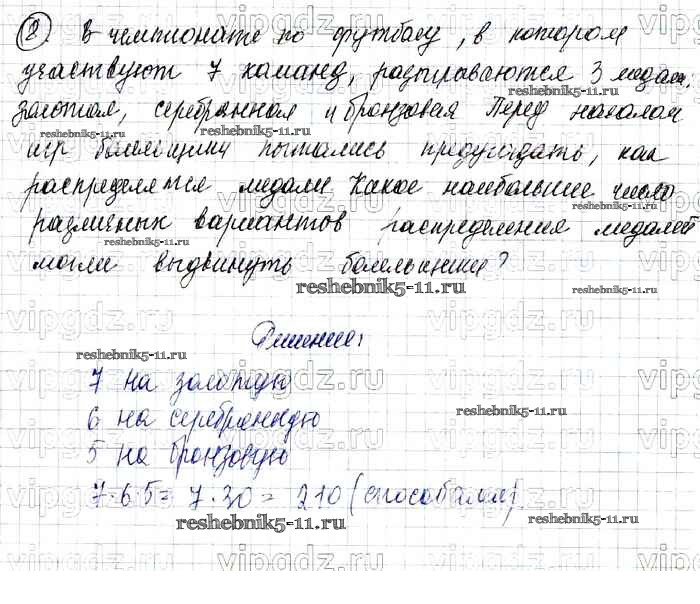 2 В чемпионате по футболу, в котором
участвуют 7 команд, разыгрываются 3 медали.
золотая, серебрянная и бронзовая Перед началом
игр болельщики пытались предугадать, как
распределятся медали Какое наибольшее число
различных вариантов распределения медалей
могли выдвинуть болельщики?
reshebnik5-11.ru
Решение:
7 на золотую
6 на серебрянную
5 на бронзовую
7·6·5= 7·30 = 210 (способами).
reshebnik5-11.ru
vipgdz.ru